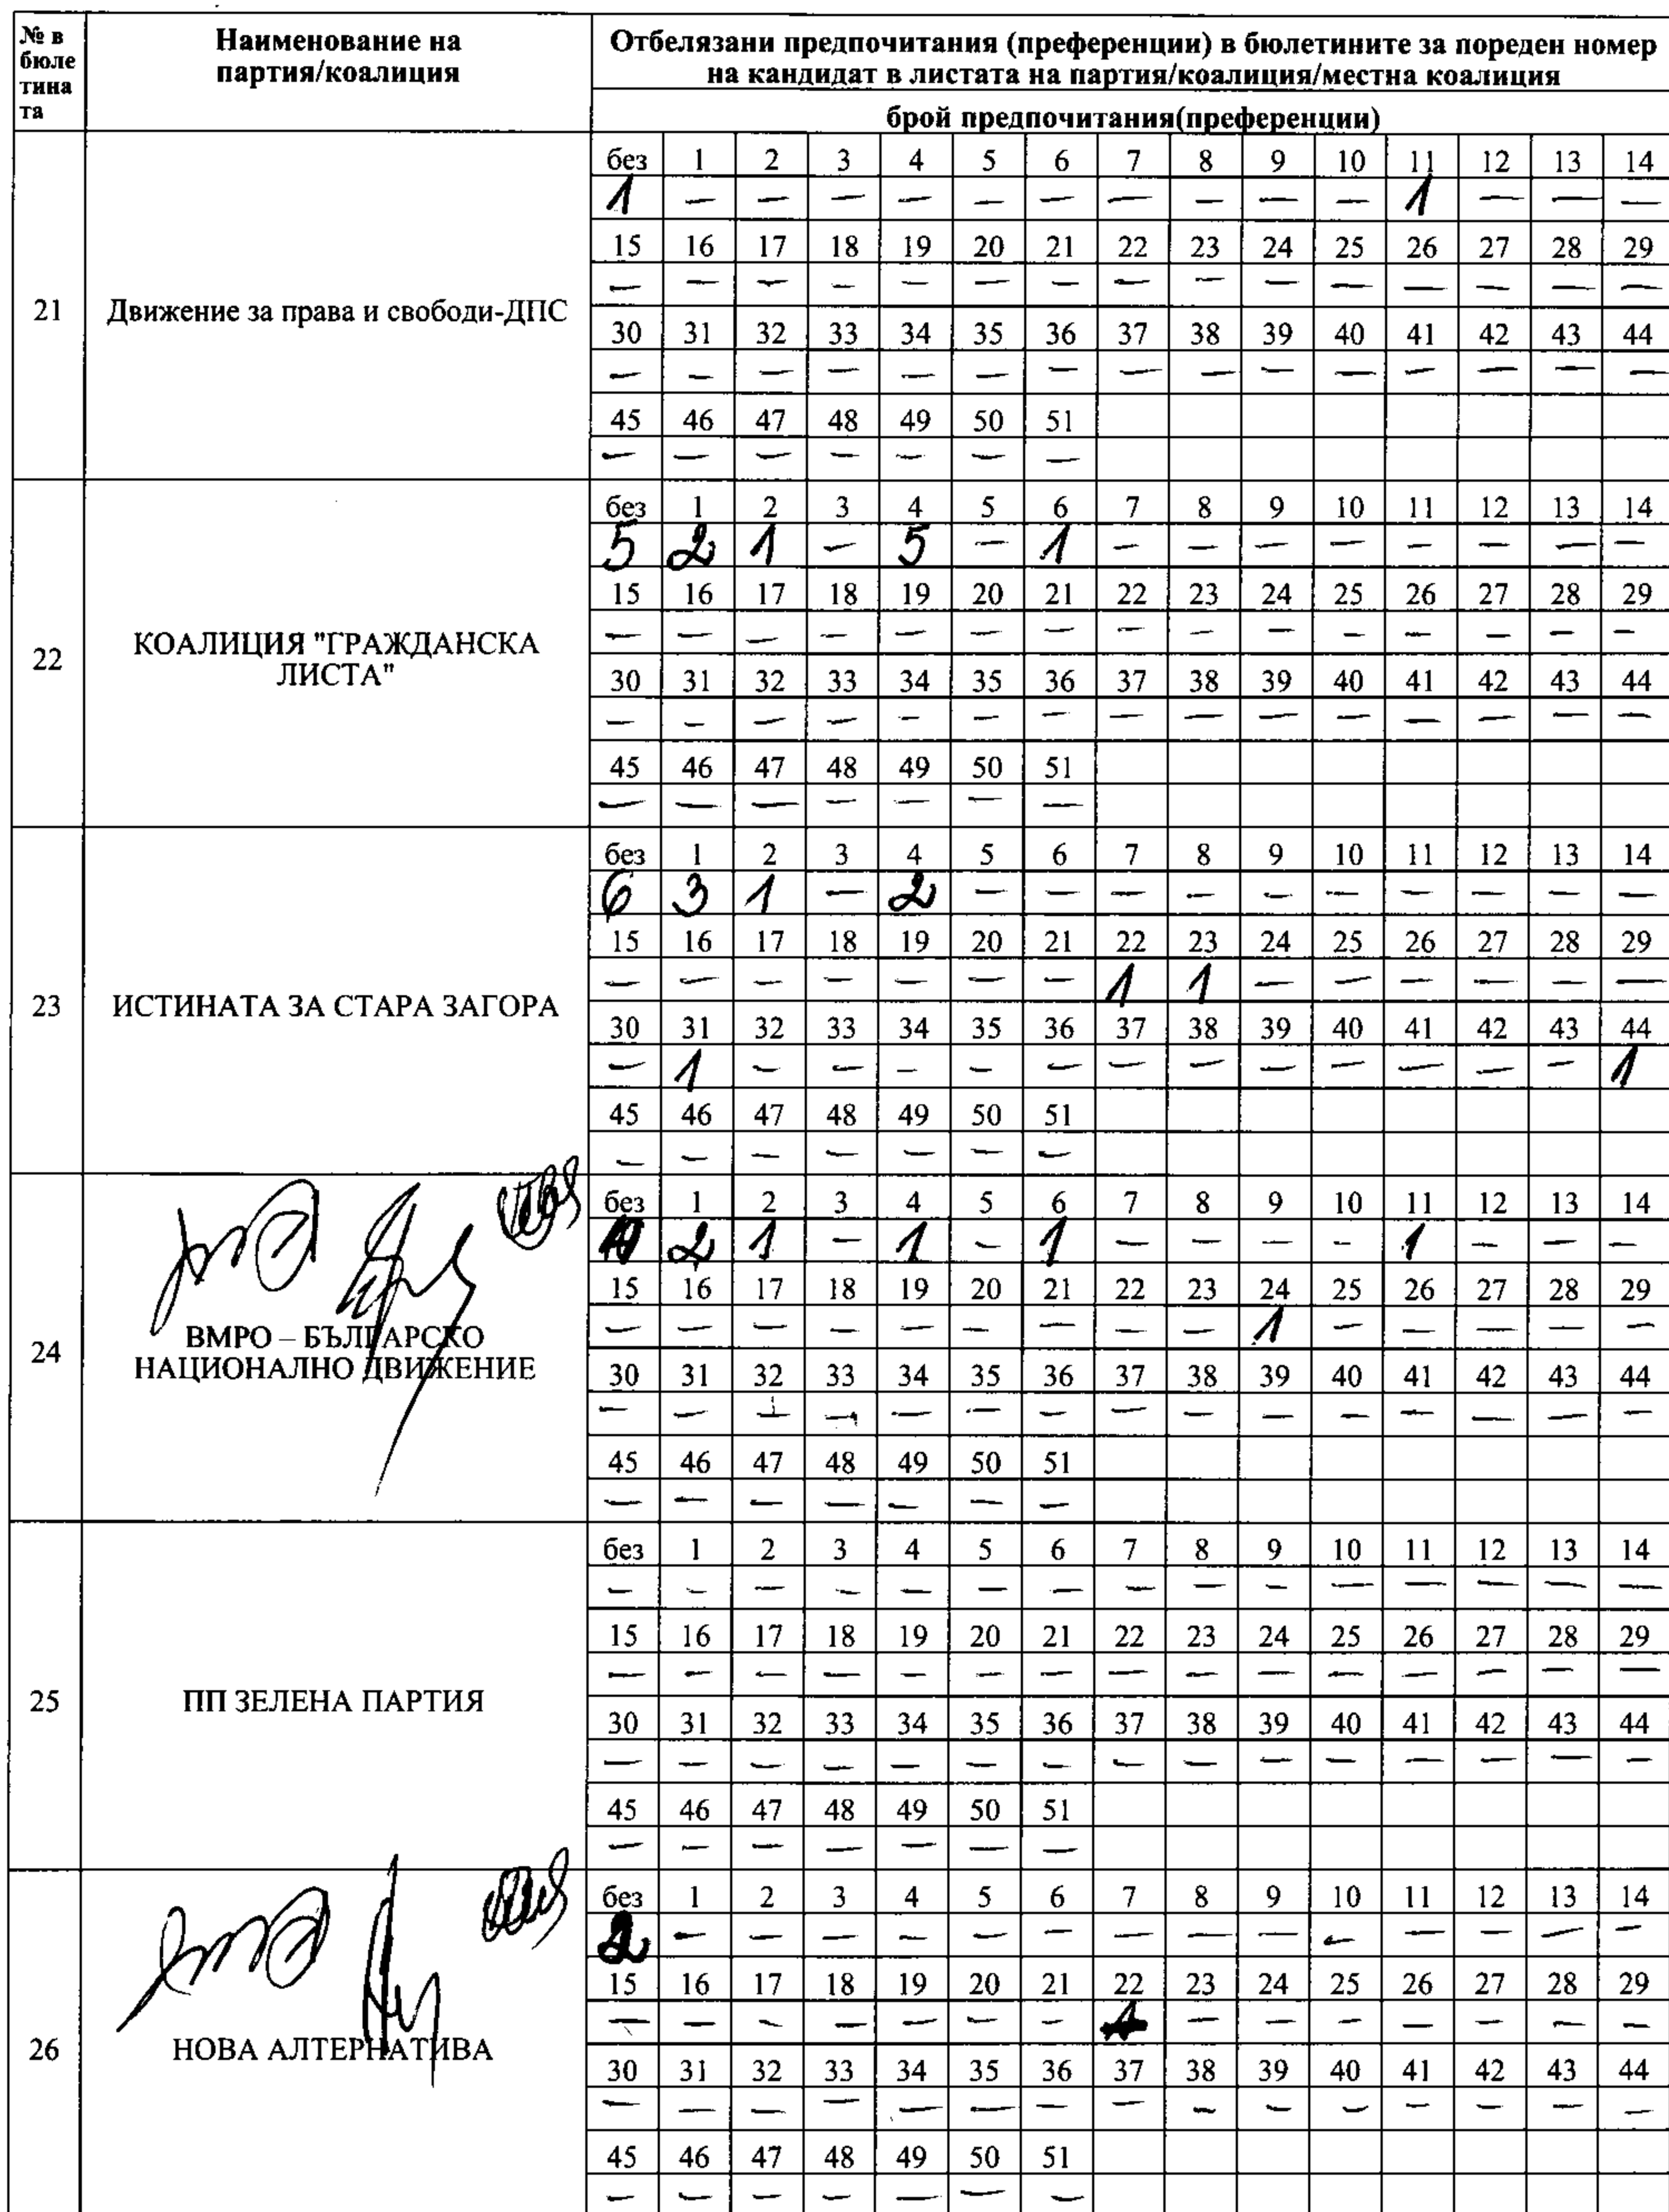 № в бюле тина та Наименование на партия/коалиция Отбелязани предпочитания (преференции) в бюлетините за пореден номер на кандидат в листата на партия/коалиция/местна коалиция
брой предпочитания(преференции)
21 Движение за права и свободи-ДПС
без 1 2 3 4 5 6 7 8 9 10 11 12 13 14
1 — — — — — — — — — — 1 — — —
15 16 17 18 19 20 21 22 23 24 25 26 27 28 29
— — — — — — — — — — — — — — —
30 31 32 33 34 35 36 37 38 39 40 41 42 43 44
— — — — — — — — — — — — — — —
45 46 47 48 49 50 51
— — — — — — —
22 КОАЛИЦИЯ "ГРАЖДАНСКА ЛИСТА"
без 1 2 3 4 5 6 7 8 9 10 11 12 13 14
5 2 1 — 5 — 1 — — — — — — — —
15 16 17 18 19 20 21 22 23 24 25 26 27 28 29
— — — — — — — — — — — — — — —
30 31 32 33 34 35 36 37 38 39 40 41 42 43 44
— — — — — — — — — — — — — — —
45 46 47 48 49 50 51
— — — — — — —
23 ИСТИНАТА ЗА СТАРА ЗАГОРА
без 1 2 3 4 5 6 7 8 9 10 11 12 13 14
6 3 1 — 2 — — — — — — — — — —
15 16 17 18 19 20 21 22 23 24 25 26 27 28 29
— — — — — — — 1 1 — — — — — —
30 31 32 33 34 35 36 37 38 39 40 41 42 43 44
— 1 — — — — — — — — — — — — 1
45 46 47 48 49 50 51
— — — — — — —
24 ВМРО – БЪЛГАРСКО НАЦИОНАЛНО ДВИЖЕНИЕ
без 1 2 3 4 5 6 7 8 9 10 11 12 13 14
2 1 — 1 — 1 — — — — 1 — — —
15 16 17 18 19 20 21 22 23 24 25 26 27 28 29
— — — — — — — — — 1 — — — — —
30 31 32 33 34 35 36 37 38 39 40 41 42 43 44
— — — — — — — — — — — — — — —
45 46 47 48 49 50 51
— — — — — — —
25 ПП ЗЕЛЕНА ПАРТИЯ
без 1 2 3 4 5 6 7 8 9 10 11 12 13 14
— — — — — — — — — — — — — — —
15 16 17 18 19 20 21 22 23 24 25 26 27 28 29
— — — — — — — — — — — — — — —
30 31 32 33 34 35 36 37 38 39 40 41 42 43 44
— — — — — — — — — — — — — — —
45 46 47 48 49 50 51
— — — — — — —
26 НОВА АЛТЕРНАТИВА
без 1 2 3 4 5 6 7 8 9 10 11 12 13 14
2 — — — — — — — — — — — — — —
15 16 17 18 19 20 21 22 23 24 25 26 27 28 29
— — — — — — — 1 — — — — — — —
30 31 32 33 34 35 36 37 38 39 40 41 42 43 44
— — — — — — — — — — — — — — —
45 46 47 48 49 50 51
— — — — — — —